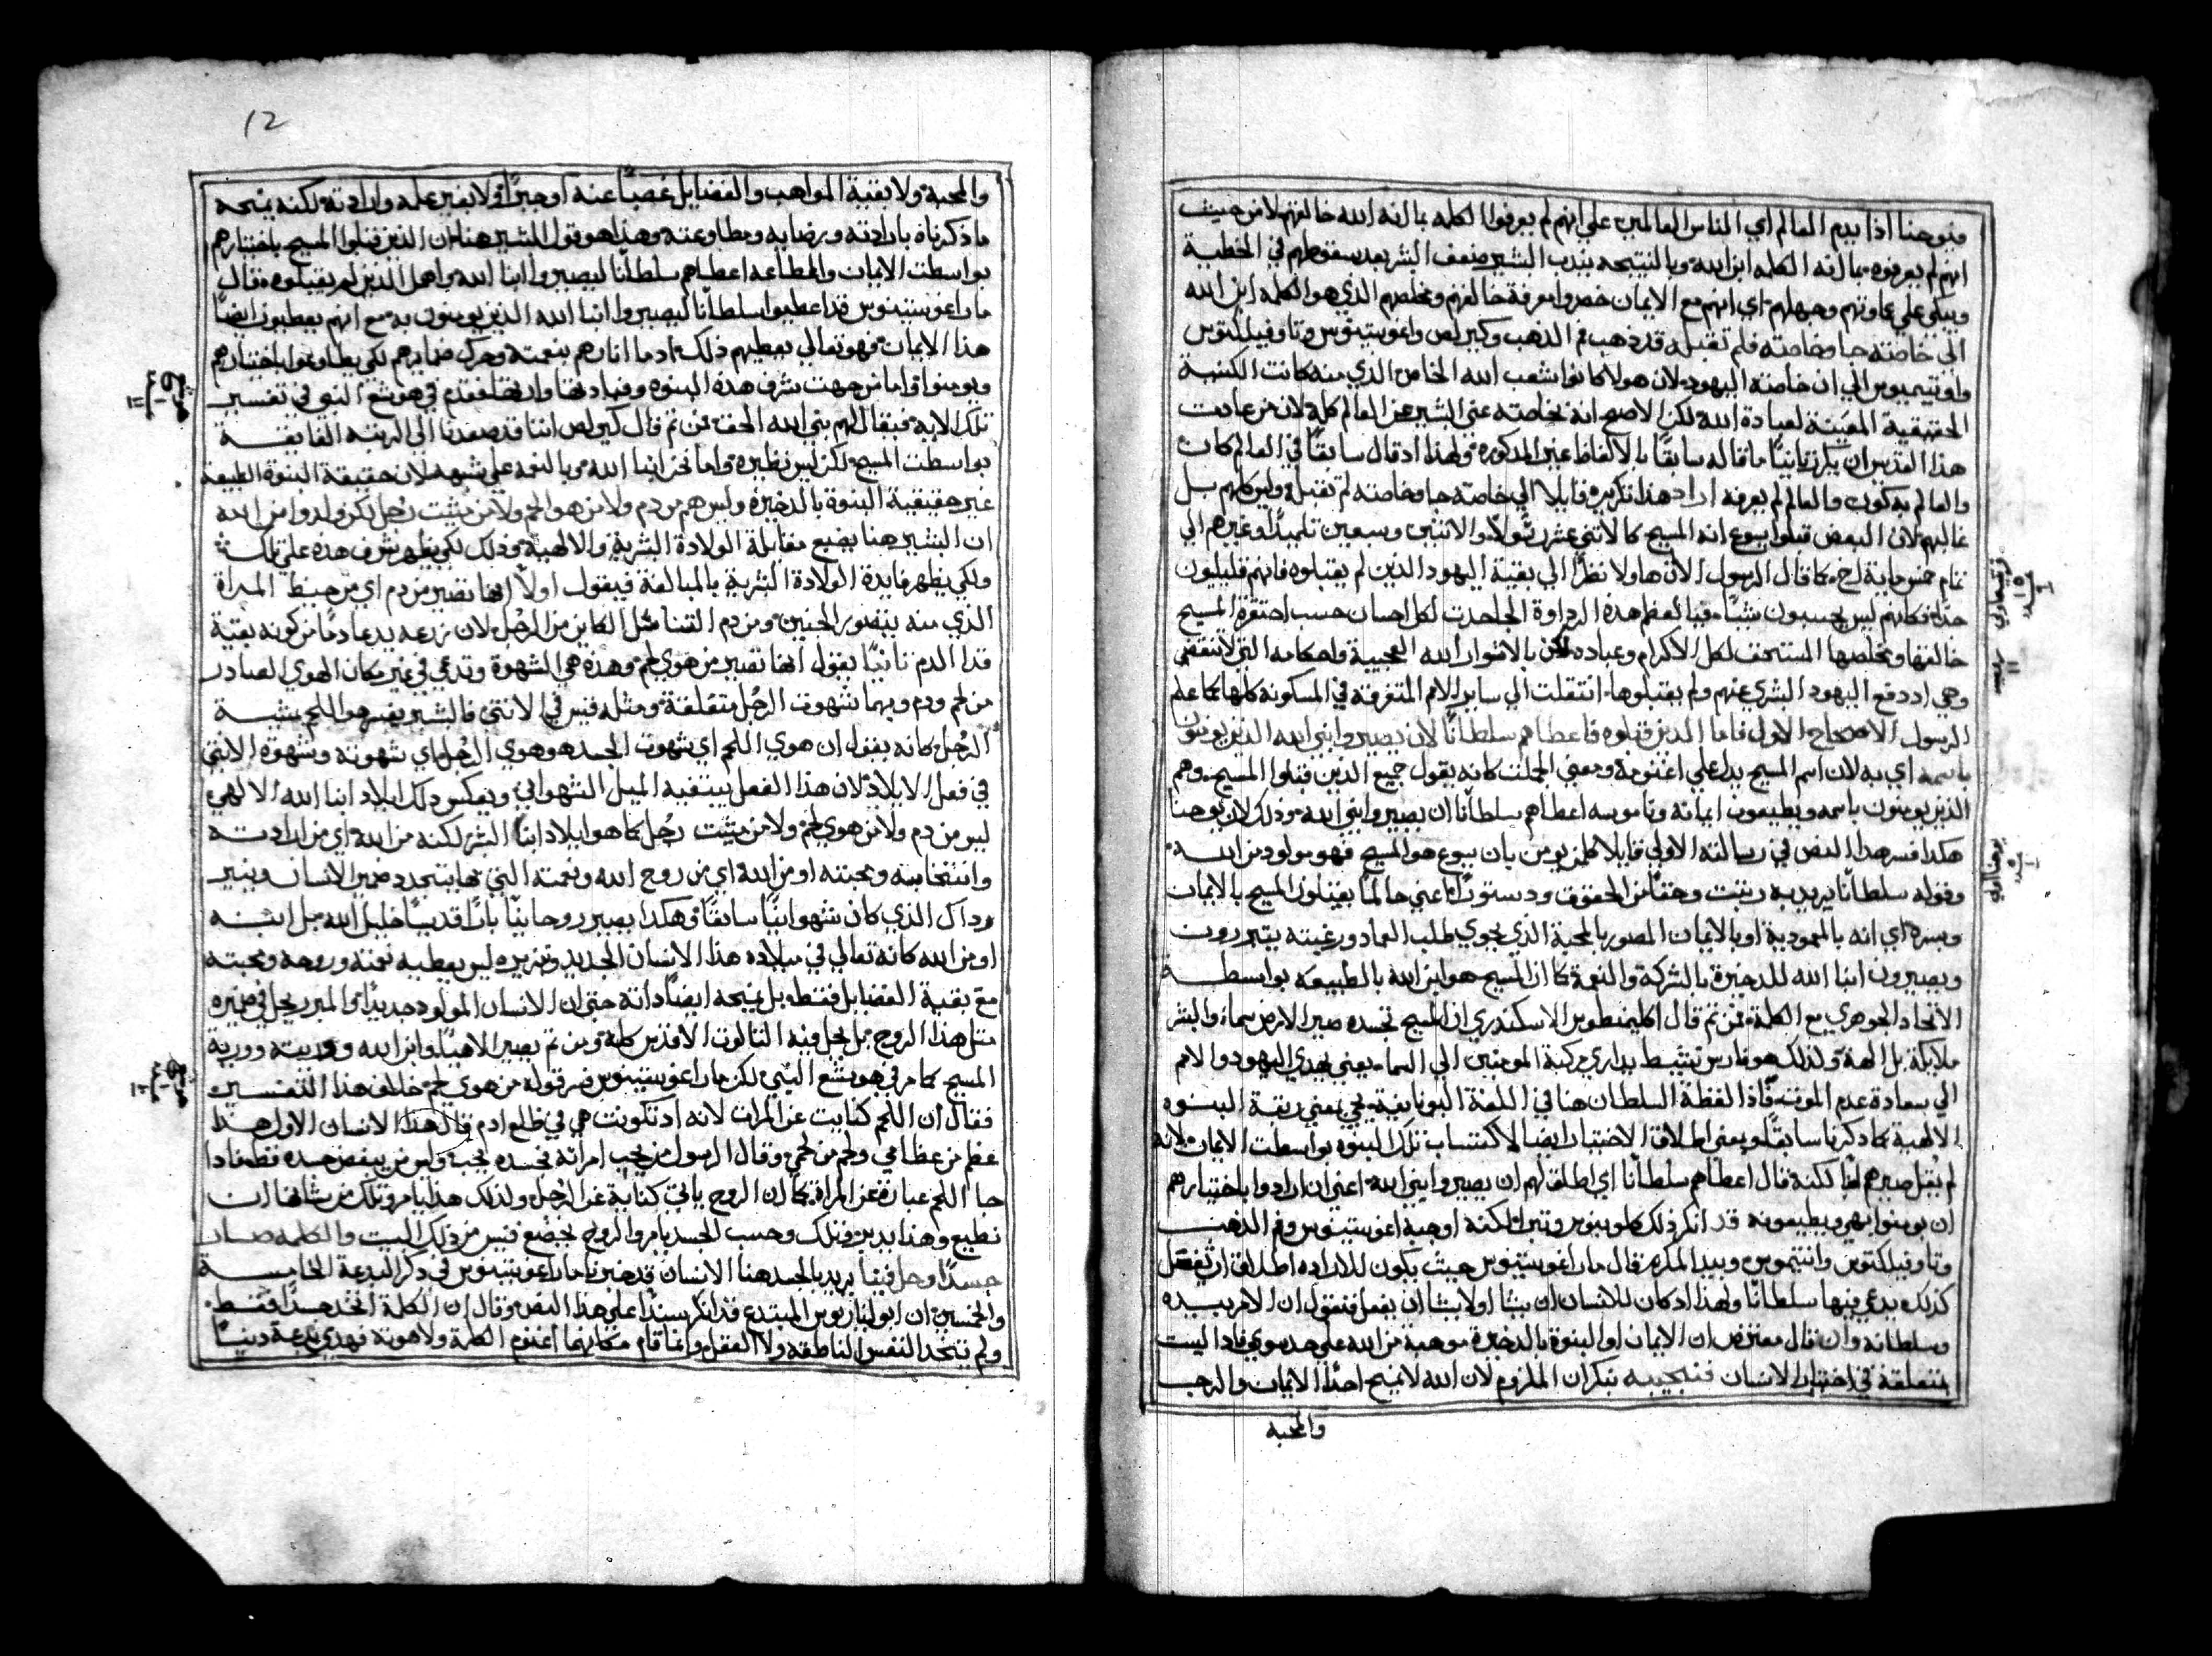 فيوحنا اذا يذم العالم اي الناس العالمين علي انهم لم يعرفوا الكلمه بما انه الله خالقهم لا من حيث
انهم لم يعرفوه بما انه الكلمه ابن الله وبالنتيجه يندب البشير ضعف البشر بعد سقوطهم في الخطية
ويبكي علي غباوتهم وجهلهم اي انهم مع الايمان خسروا معرفة خالقهم ومخلصهم الذي هو الكلمه ابن الله
الي خاصته جا وخاصته فلم تقبله قد ذهب فم الذهب وكيرلص واغوستينوس وتاوفيلكتوس
وافتيميوس الي ان خاصته اليهود لان هولا كانوا شعب الله الخاص الذي منه كانت الكنيسة
الحقيقية المعينة لعبادة الله لكن الاصح انه بخاصته عني البشير عن العالم كله لان من عادت
هذا القديس ان يكرر ثانيًا ما قاله سابقًا بالالفاظ غير المذكوره ولهذا اد قال سابقًا في العالم كان
والعالم به كون والعالم لم يعرفه اراد هذا تكريره قايلا الي خاصته جا وخاصته لم تقبله وليس كلهم بل
غالبهم لان البعض قبلوا يسوع انه المسيح كالاتني عشر رسولًا والاتنين وسبعين تلميدًا وغيرهم الي
تمام خمس ماية اخ كما قال الرسول الا ان هاولا نظرًا الي بقية اليهود الذين لم يقبلوه فانهم قليلون
جدًا فكانهم ليس يحسبون شيًا فيا لعظم هذه الرداوة الجاحدت لكل احسان حسب احتقرة المسيح
خالقها ومخلصها المستحق لكل الاكرام وعباده لكن بالاقوار الله العجيبة واحكامه التي لا تنقضي
وهي اد دفع اليهود البشري عنهم ولم يقبلوها انتقلت الي ساير الامم المتفرقه في المسكونه كلها كما علم
الرسول الاصحاح الاول فاما الدين قبلوه فاعطاهم سلطانًا لان يصيروا بني الله الذين يومنون
باسمه اي به لان اسم المسيح يدل علي اقنومه ومعني الجملت كانه يقول جميع الذين قبلوا المسيح وهم
الذين يومنون باسمه ويطيعون ايمانه وناموسه اعطاهم سلطانًا ان يصيروا بني الله وذلك لان يوحنا
هكدا فسر هدا النص في رسالته الاولي قايلا كلمن يومن بان يسوع هو المسيح فهو مولود من الله
وقوله سلطانًا يريد به رتبت وحقًا من الحقوق ودستورًا اعني حالما يقبلون المسيح بالايمان
وبسره اي انه بالمعمودية او بالايمان المصور بالمحبة الذي يحوي طلب العماد ورغبته يتبررون
ويصيرون ابنا الله للدخيرة بالشركة والنعمة كما ان المسيح هو ابن الله بالطبيعه بواسطة
الاتحاد الجوهري مع الكلمة فمن تم قال اكليمنطوس الاسكندري ان المسيح بتجسده صير الارض سماء والبشر
ملايكة بل الهة ولذلك هو فارس تنشيط براري مركبة المومنين الي السماء يعني يهدي اليهود والامم
الي سعادة عدم الموت فاذا لفظة السلطان هنا في اللغة اليونانيه تجي بمعني رتبة البنوه
الالهية كما ذكرنا سابقًا وبمعني اطلاق الاختيار ايضا لاكتساب تلك البنوه بواسطت الايمان لانه
لم يقل صيرهم لكنه قال اعطاهم سلطانًا اي اطلق لهم ان يصيروا بني الله اعني ان ارادوا باختيارهم
ان يومنوا بهي ويطيعونه قد انكر ذلك كلوينوس وتبرا لكنه اوهبه اغوستينوس وفم الذهب
وتاوفيلكتوس وافتيموس وبيدا المكرم قال مار اغوستينوس حيث يكون للاراده اطلاق ان تفعل
كذلك يدعي فيها سلطانًا ولهذا اد كان للانسان ان يشا او لا يشا ان يفعل فنقول ان الامر بيده
وسلطانه وان قال معترض ان الايمان او البنوة بالدخيرة موهبة من الله علي حد سوي فاذا ليست
متعلقة في اختيار الانسان فنجيبه بنكران الملزوم لان الله لا يمنح احدًا الايمان والرجا
والمحبه
رومية
١١
يوحنا اولي
١٢
والمحبة ولا بقية المواهب والفضايل غصبًا عنه او جبرًا ولا بغير علمه وارادته لكنه يمنحه
ما ذكرناه بارادته وبرضايه ومطاوعته وهذا هو قول البشير هنا ان الذين قبلوا المسيح باختيارهم
بواسطت الايمان والطاعه اعطاهم سلطانًا ليصيروا ابنا الله واهمل الذين لم يقبلوه قال
مار اغوستينوس قد اعطيوا سلطانًا ليصيروا ابنا الله الذين يومنون به مع انهم يعطيون ايضًا
هذا الايمان فهو تعالي يعطيهم ذلك اد ما انارهم بنعمته وحرك ضمايرهم لكي يطاوعوا باختيارهم
ويومنوا واما من جهت شرف هذه البنوه وفيادتها وان كلها فقدم في هوشع النبي في تفسير
تلك الايه فيقال لهم بني الله الحق فمن تم قال كيرلص اننا قد صعدنا الي الرتبه الفايقة
بواسطت المسيح لكن ليس نظيره واما نحن ابنا الله بالنعمه علي شبهه لان حقيقة البنوة الطبيعة
غير حقيقية البنوة بالدخيرة وليس هم من دم ولا من هوا لحم ولا من مشيت رجل لكن ولدوا من الله
ان البشير هنا يضع مقابلة الولادة البشرية والالهية وذلك لكي يظهر شرف هذه علي تلك
ولكي يظهر فايدة الولادة البشرية بالمبالغة فيقول اولًا انها تصير من دم اي من حيط المراة
الذي منه يتصور الجنين ومن دم القنا مثل الكاين من الرجل لان زرعه يدعا دمًا من كونه بقية
قدا الدم ثانيًا يقول انها تصير من هوي لحم وهذه هي الشهوة وتدعي في غير مكان الهوي الصادر
من لحم ودم وبهما شهوت الرجل متعلقة ومثله قس في الانثي فالبشير يفسر هوا اللحم بمشية
الرجل كانه يقول ان هوي اللحم اي شهوت الجسد هو هوي الرجل اي شهوته وشهوة الانثي
في فعل الايلاد لان هذا الفعل يتقبه الميل الشهواني وبعكس ذلك ايلاد ابنا الله الالهي
ليس من دم ولا من هوي لحم ولا من مشيت رجل كما هو ايلاد ابنا البشر لكنه من الله اي من ارادته
وانتخابه ومحبته او من الله اي من روح الله ونعمته التي بها يتجدد ضمير الانسان ويتغير
وداك الذي كان شهوانيًا سابقًا هكدا يصير روحانيًا بارًا قديسًا خليل الله بل ابنه
او من الله كانه تعالي في ميلاده هذا الانسان الجديد وتبريره ليس يعطيه نعمته وروحه ومحبته
مع بقية الفضايل فقط بل يمنحه ايضًا داته حتي ان الانسان المولود جديدًا والمبرر يحل في ضميره
مثل هذا الروح بل يحل فيه التالوت الاقدس كله ومن تم يصير الاهيًا وابن الله ووريثه ووريث
المسيح كما مر في هوشع النبي لكن مار اغوستينوس فسر قوله من هوي لحم خلاف هذا التفسير
فقال ان اللحم كنايت عن المراة لانه اد تكونت هي في ظلع ادم قال هذا الانسان الاول هدا
عظم من عظامي ولحم من لحمي وقال الرسول من يحب امراته فجسده يحب وليس من يبغض جسده قط فادا
جا اللحم عبارة عن المراة كما ان الروح ياتي كناية عن الرجل ولذلك هذا يامر وتلك من شانها ان
تطيع وهنا يدير وتلك وحسب الجسد يامر والروح يخضع فيس من ذلك البيت والكلمه صار
جسدًا وحل فينا يريد بالجسد هنا الانسان قد خبرنا مار اغوستينوس في ذكر البدعة الخامسة
والخمسين ان ابوليناريوس المبتدع قد انكر سندًا علي هدا النص وقال ان الكلمة اتخد جسدًا فقط
ولم يتخد النفس الناطقه ولا العقل وانما قام مكانهما اقنوم الكلمة ولاهوته فهدي بدعة دنيئًا